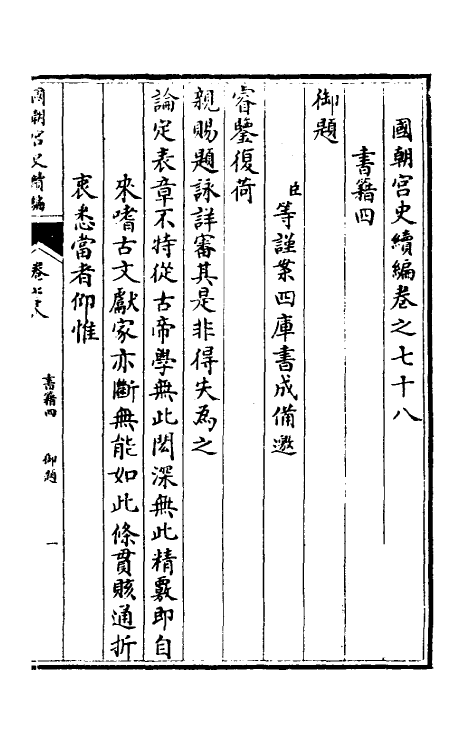 國朝宮史續編卷之七十八
書籍四
御題
臣等謹案四庫書成備邀
睿鑒復荷
親賜題詠詳審其是非得失為之
論定表章不特從古帝學無此閎深無此精覈即自
來嗜古文獻家亦斷無能如此條貫賅通折
衷悉當者仰惟
國朝宮史續編
卷七十八
書籍四
御題
一